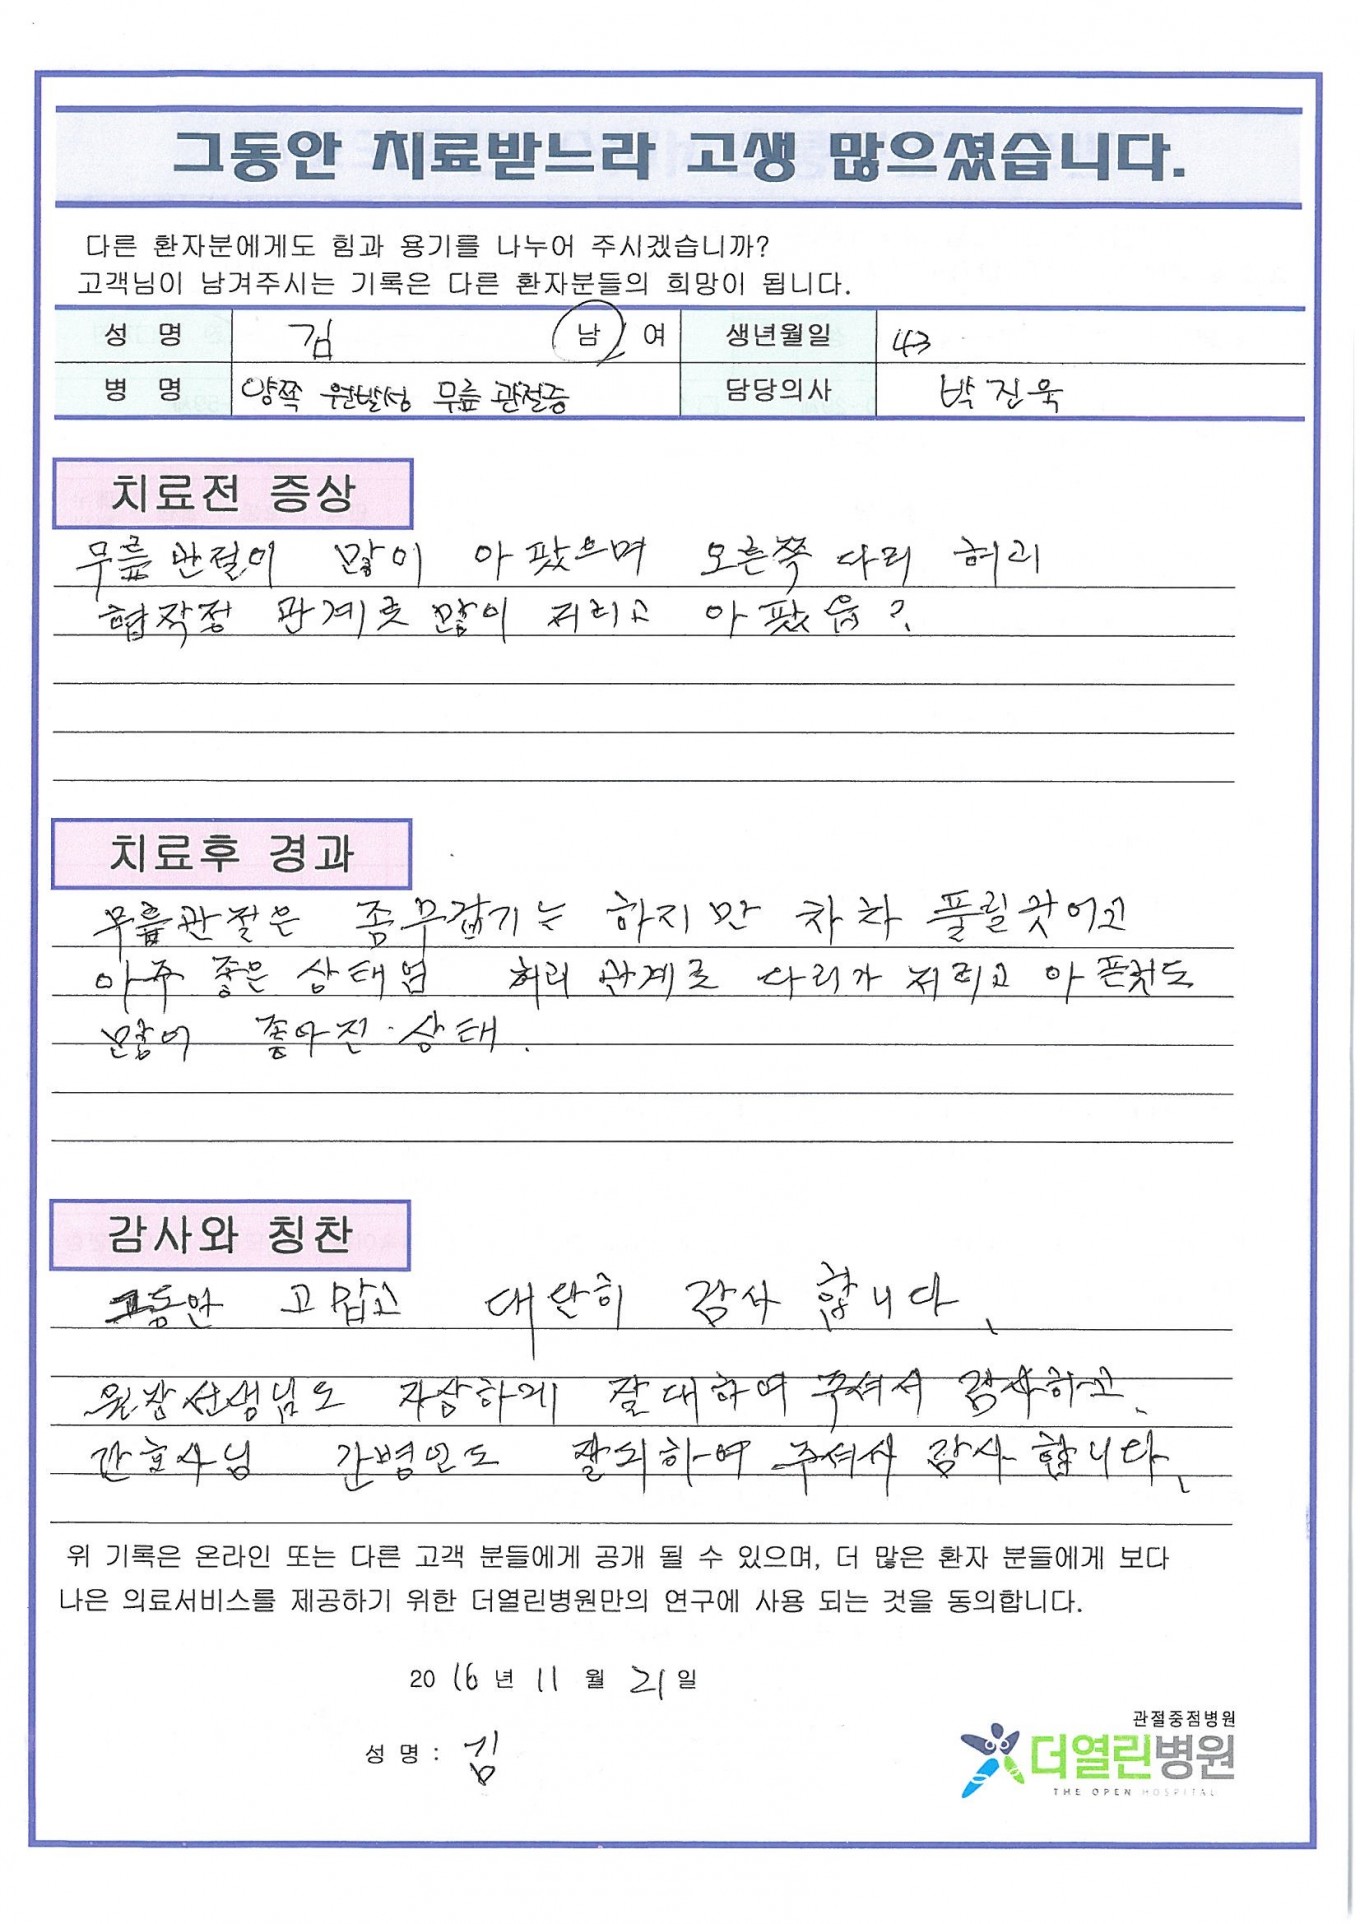 그동안 치료받느라 고생 많으셨습니다.
다른 환자분에게도 힘과 용기를 나누어 주시겠습니까?
고객님이 남겨주시는 기록은 다른 환자분들의 희망이 됩니다.
성 명 김 남, 여 생년월일 43
병 명 양쪽 원발성 무릎 관절증 담당의사 박진욱
치료전 증상
무릎 관절이 많이 아팠으며 오른쪽 다리 허리
협착정 관계로 많이 저리고 아팠음?
치료후 경과
무릎관절은 좀 무겁기는 하지만 차차 풀릴것이고
아주 좋은 상태임 허리 관계로 다리가 저리고 아픈것도
많이 좋아진 상태.
감사와 칭찬
그동안 고맙고 대단히 감사합니다.
원장선생님도 자상하게 잘대하여 주셔서 감사하고,
간호사님 간병인도 잘하여 주셔서 감사합니다.
위 기록은 온라인 또는 다른 고객 분들에게 공개 될 수 있으며, 더 많은 환자 분들에게 보다
나은 의료서비스를 제공하기 위한 더열린병원만의 연구에 사용 되는 것을 동의합니다.
2016년 11월 21일
성 명 : 김
관절중점병원
더열린병원
THE OPEN HOSPITAL